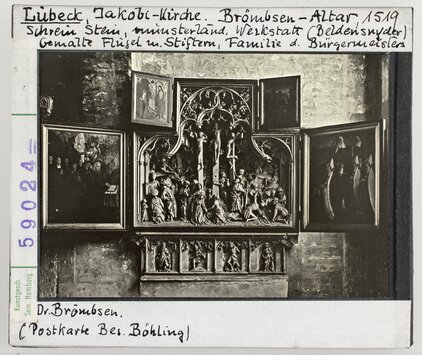 Lübeck, Jakobi-Kirche. Brömbsen-Altar, 1519
Schrein Stein, münsterländ. Werkstatt (Beldensnyder)
Gemalte Flügel m. Stiftern, Familie d. Bürgermeisters
59024
Kunstgesch.
Sem. Hamburg
Dr. Brömbsen.
(Postkarte Bes. Böhling)